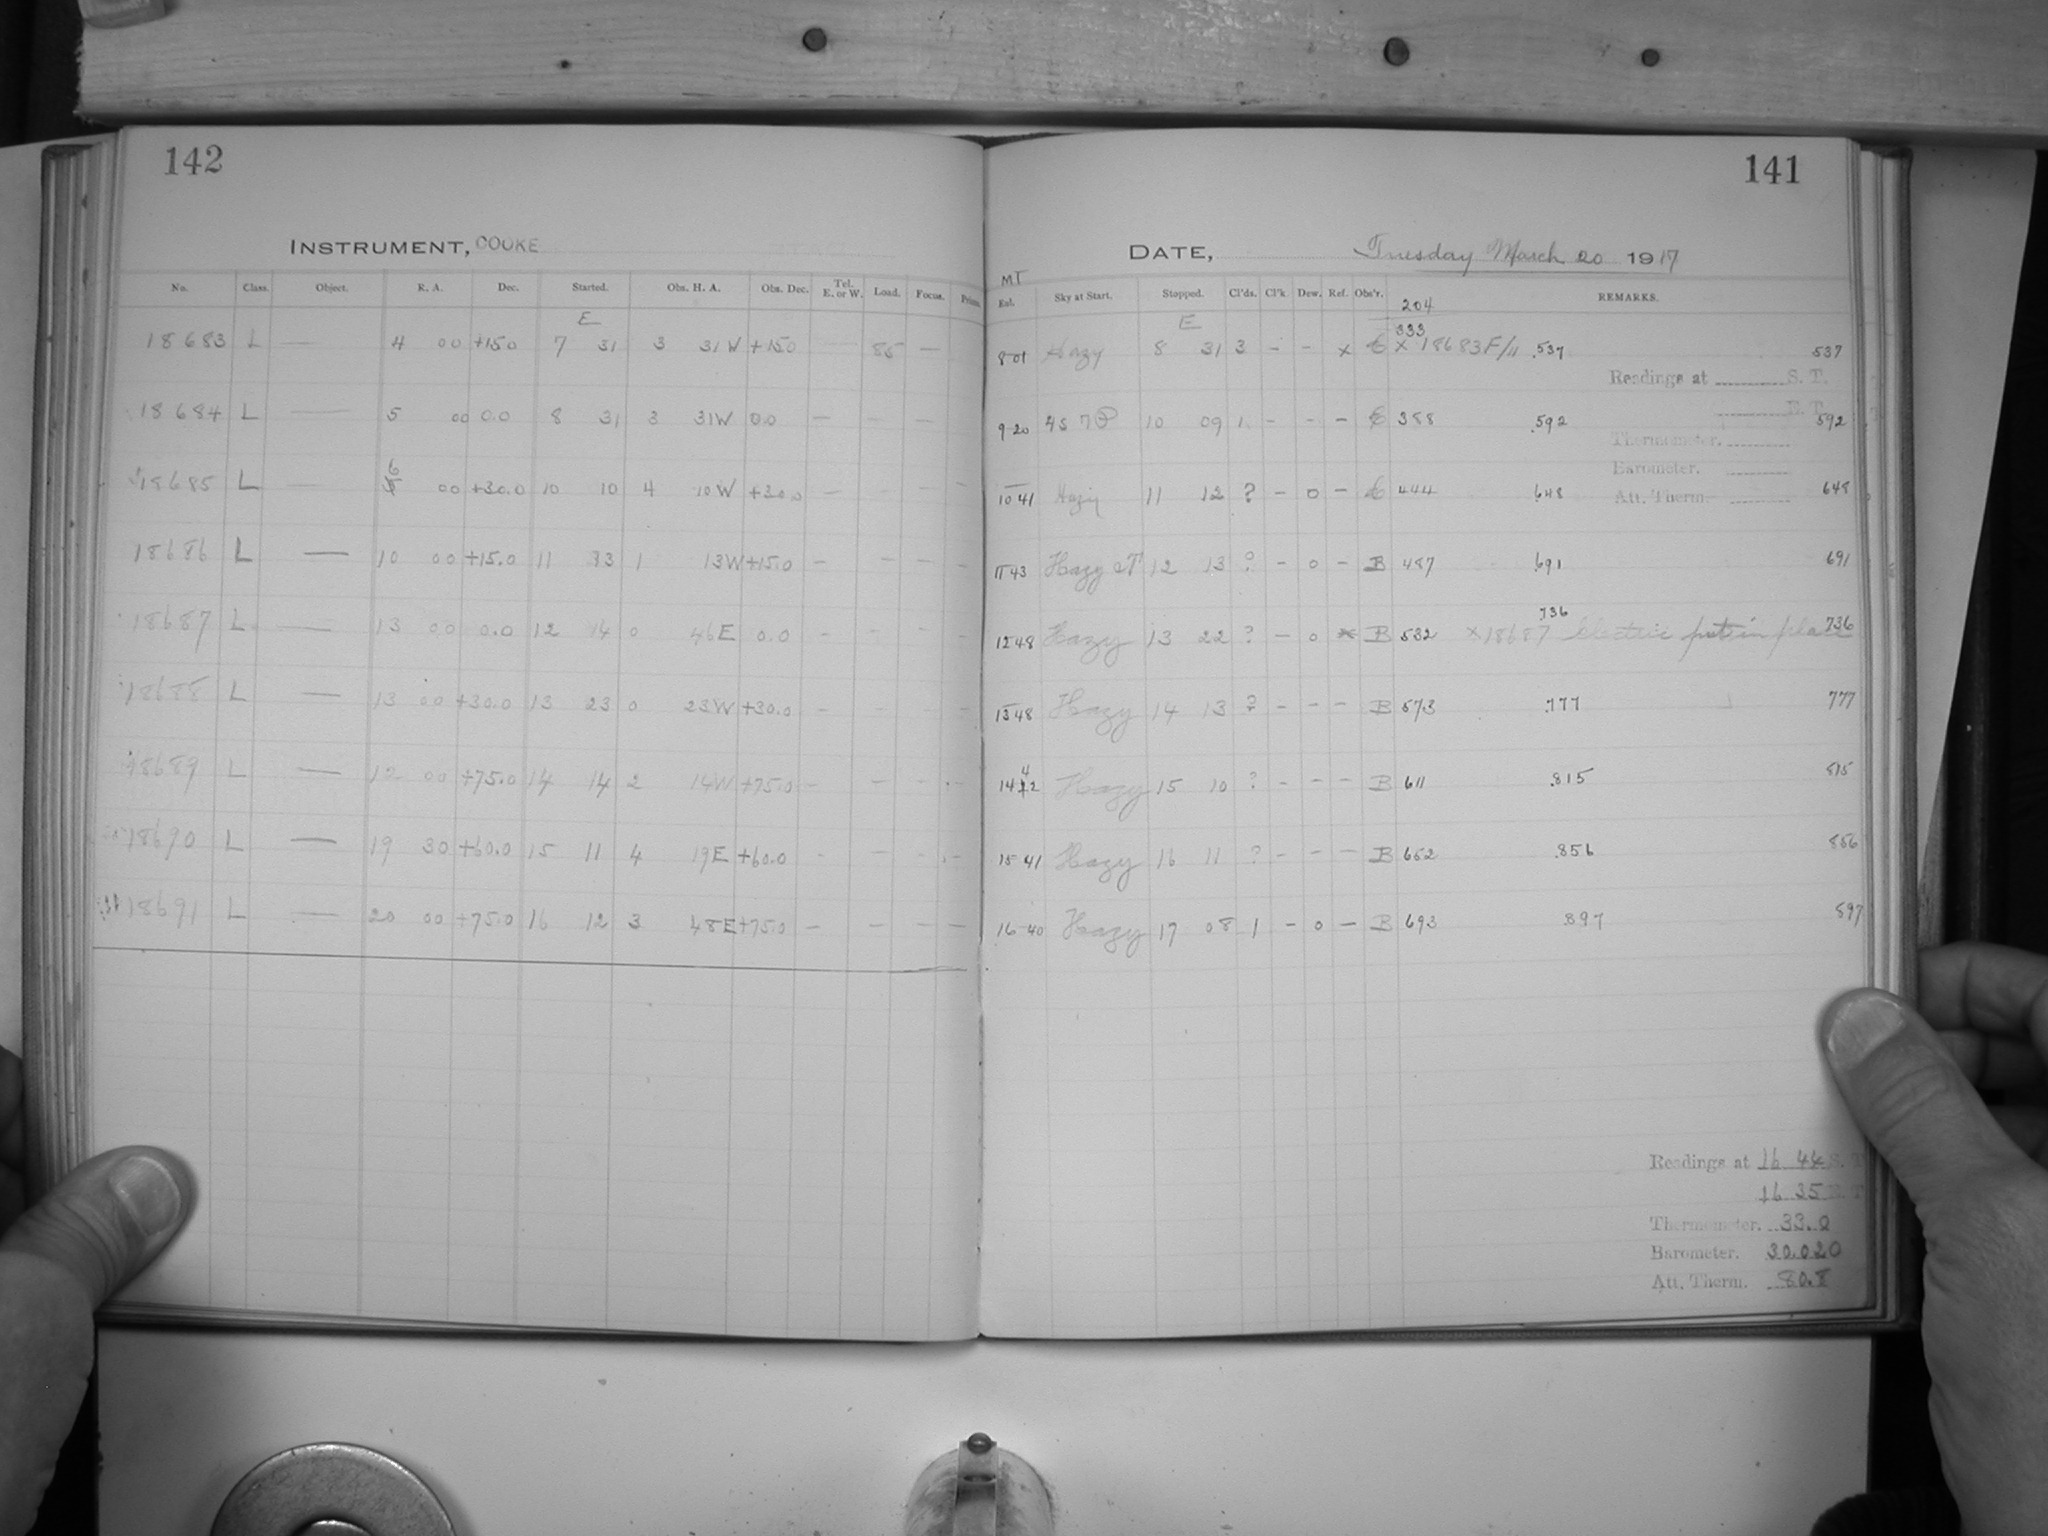 142
INSTRUMENT, COOKE
No. Class. Object. R. A. Dec. Started. Obs. H. A. Obs. Dec. Tel. E. or W. Load. Focus.
E
18683 L — 4 00 +15.0 7 31 3 31 W +15.0 85 —
18684 L — 5 00 0.0 8 31 3 31 W 0.0 — — —
18685 L — 6 00 +30.0 10 10 4 10 W +30.0 — — — —
18686 L — 10 00 +15.0 11 33 1 13 W +15.0 — — — —
18687 L — 13 00 0.0 12 14 0 46 E 0.0 — — — —
18688 L — 13 00 +30.0 13 23 0 23 W +30.0 — — — —
18689 L — 12 00 +75.0 14 14 2 14 W +75.0 — — — —
18690 L — 19 30 +60.0 15 11 4 19 E +60.0 — — — —
18691 L — 20 00 +75.0 16 12 3 48 E +75.0 — — — —
141
DATE, Tuesday March 20 1917
MT
Sky at Start. Stopped. Cl'ds. Cl'k Dew. Ref. Obs'r. REMARKS.
204
E
333
8 01 Hazy 8 31 3 - - x x 18683 F/11 .537 537
Readings at S. T.
9 20 10 09 1 - - - 388 .592 592
Thermometer.
Barometer.
10 41 Hazy 11 12 ? - 0 - 444 .648 648
Att. Therm.
11 43 Hazy 12 13 ? - 0 - B 487 .691 691
.736
12 48 Hazy 13 22 ? - 0 x B 532 x 18687 electric put in place 736
13 48 Hazy 14 13 ? - - - B 573 .777 777
14 42 Hazy 15 10 ? - - - B 611 .815 815
15 41 Hazy 16 11 ? - - - B 652 .856 856
16 40 Hazy 17 08 1 - 0 - B 693 .897 897
Readings at 16 44 S. T.
16 35
Thermometer. 33.0
Barometer. 30.020
Att. Therm. 80.8